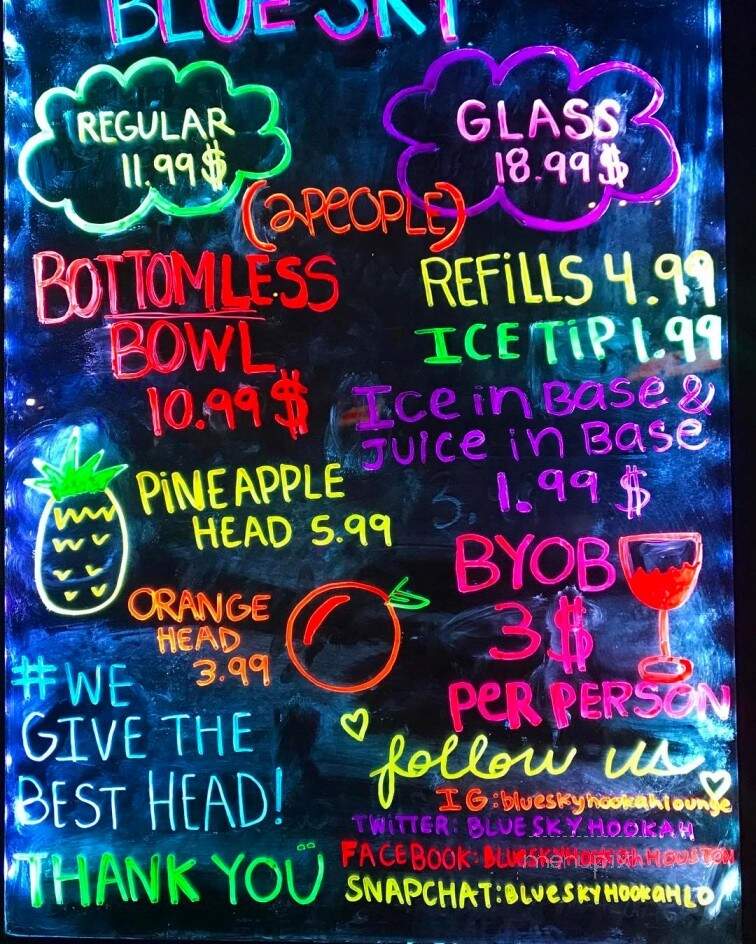 BLUE SKY
REGULAR
11.99$
GLASS
18.99$
(2PEOPLE)
BOTTOMLESS
BOWL
10.99$
REFiLLS 4.99
ICE TiP 1.99
Ice in Base &
Juice in Base
1.99 $
PiNEAPPLE
HEAD 5.99
ORANGE
HEAD
3.99
BYOB
3$
PER PERSON
#WE
GIVE THE
BEST HEAD!
THANK YOU
follow us
IG:blueskyhookahlounge
TWITTER: BLUESKYHOOKAH
FACEBOOK: BLUESKYHOOKAH HOUSTON
SNAPCHAT:BLUESKYHOOKAHLO